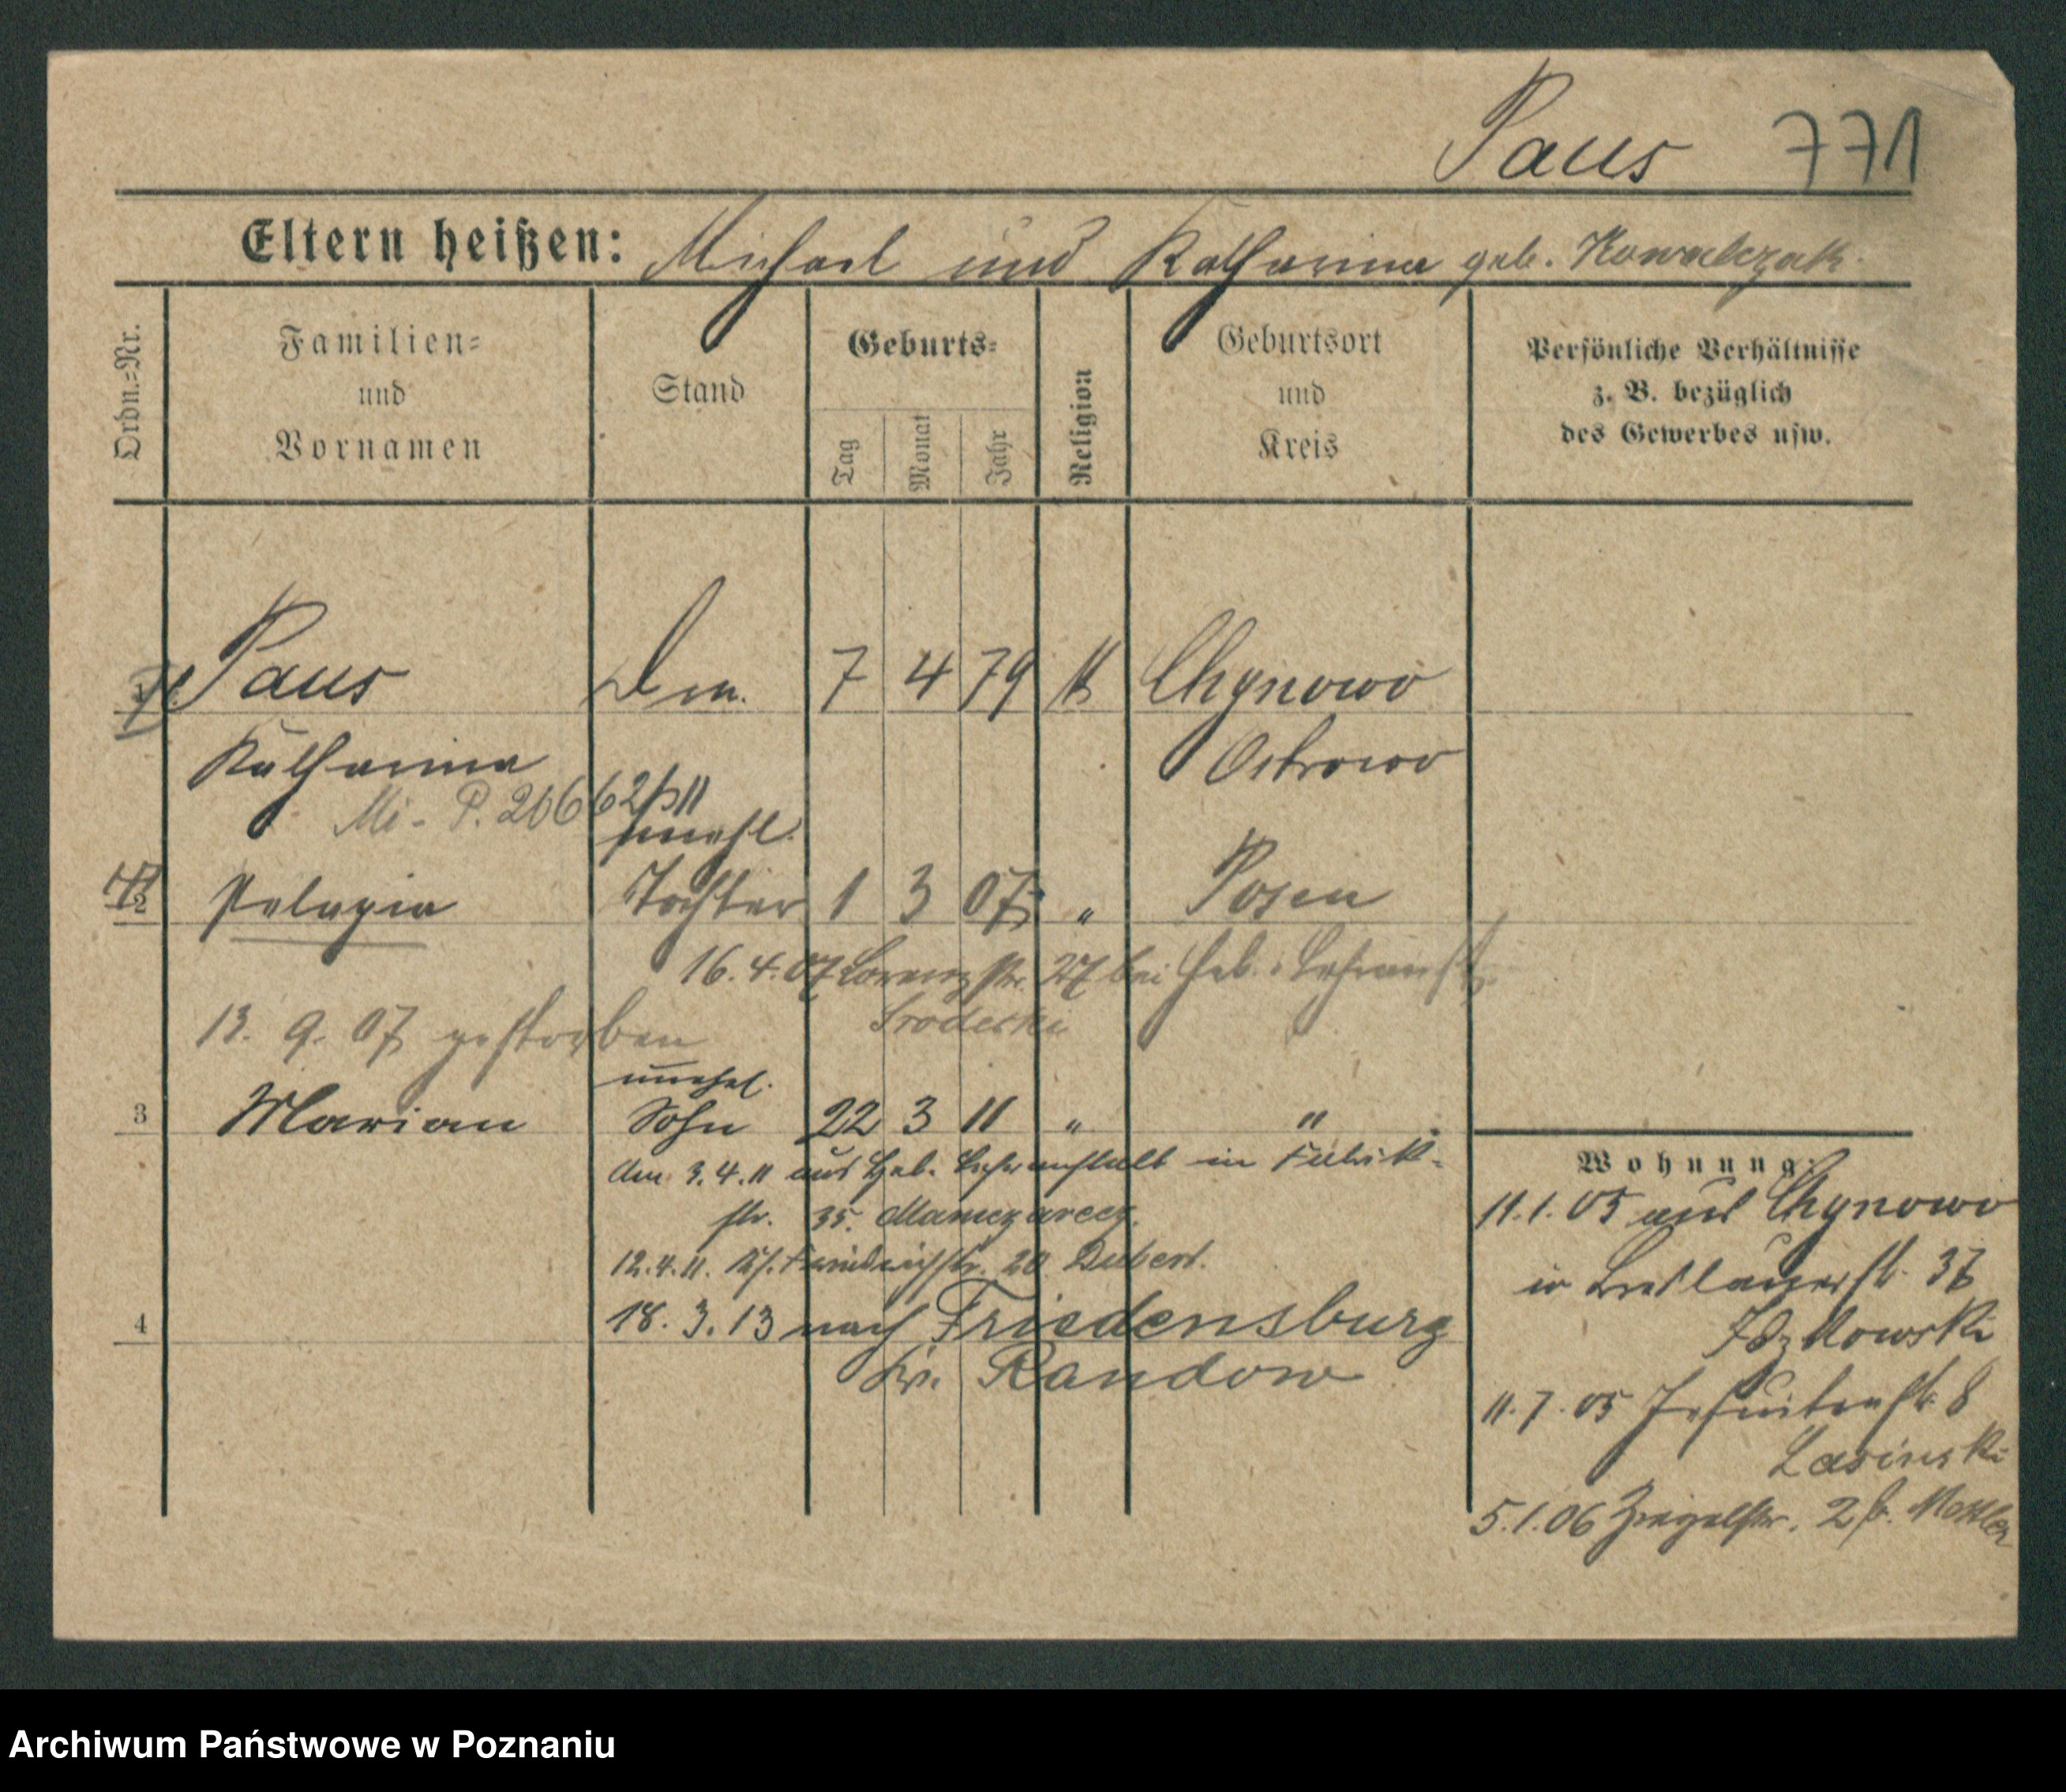 Paus 771
Eltern heißen: Michael und Katharina geb. Kowalczak.
Ordn.-Nr.
Familien-
und
Vornamen
Stand
Geburts-
Tag
Monat
Jahr
Religion
Geburtsort
und
Kreis
Persönliche Verhältnisse
z. B. bezüglich
des Gewerbes usw.
Paus 7 4 79 k Chynowo
Katharina Ostrowo
Mi - P. 20662/311
unehl.
2 Pelagia Tochter 1 3 07 " Posen
16. 4. 07 Lorenzstr. bei Heb. Lehranst.
Srodecki
13. 9. 07 gestorben
unehel.
3 Marian Sohn 22 3 11 " "
Am 3.4.11 aus Heb. Lehranstalt in Fabrik-
str. 35.
12.4.11. 20 Dubert.
4 18. 3. 13 nach Friedensburg
Kr. Randow
Wohnung:
11.1.05 aus Chynowo
in Breslauerstr. 36
11.7.05 Jesuitenstr. 8
Lasinski
5.1.06 Ziegelstr. 2 b.
Archiwum Państwowe w Poznaniu